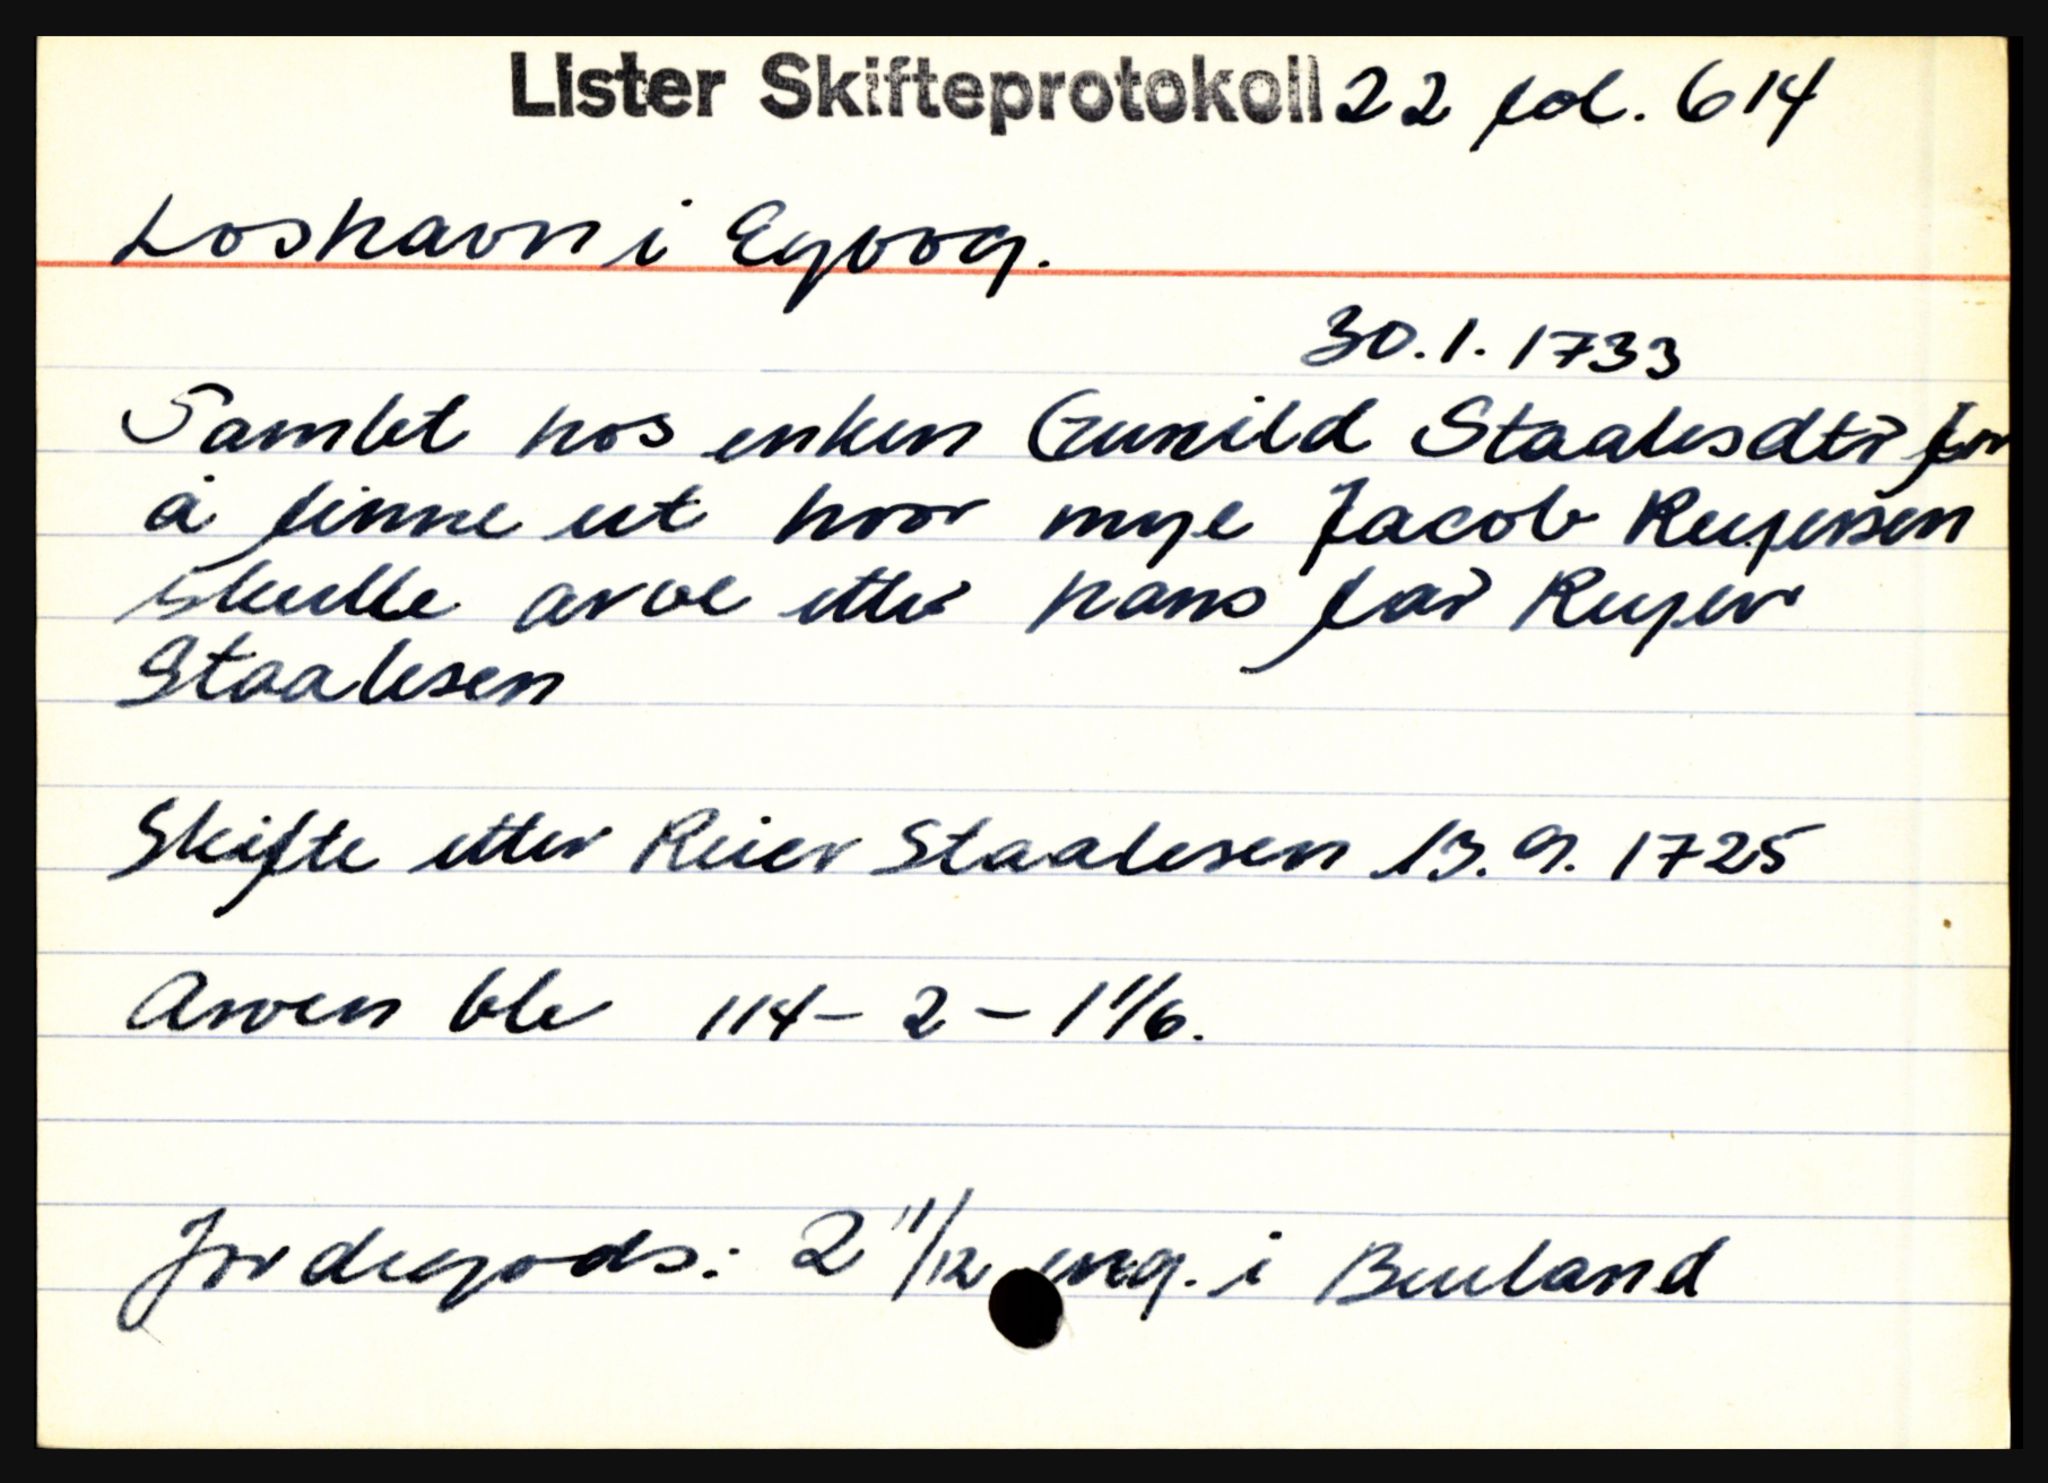 Lister Skifteprotokoll 22 fol. 614
Loshavn i Eyvog.
30.1.1733
Samlet hos enken Gunild Staalesdtr for
å finne ut hvor mye Jacob Reyersen
skulle arve etter hans far Reyer
Staalesen
Skifte etter Reier Staalesen 13.9.1725
Arven ble 114 - 2 - 1 1/6.
Jordegods: 2 11/12 eng. i Buuland